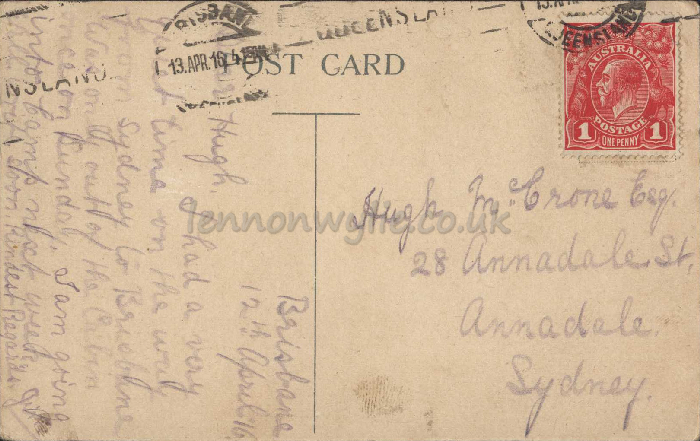 BRISBANE
13.APR.16.4
QUEENSLAND
NSLAND
13.APR
QUEENSLAND
POST CARD
AUSTRALIA
POSTAGE
1 1
ONE PENNY
Hugh McCrone Esq.
28 Annadale St.
Annadale.
Sydney.
Brisbane
12th April 16
Hugh,
I had a very
time on the way
Sydney to Brisbane
Was only out of the Cabin
on Sunday. I am going
into Camp next week,
soon. Kindest Regards
lennonwylie.co.uk